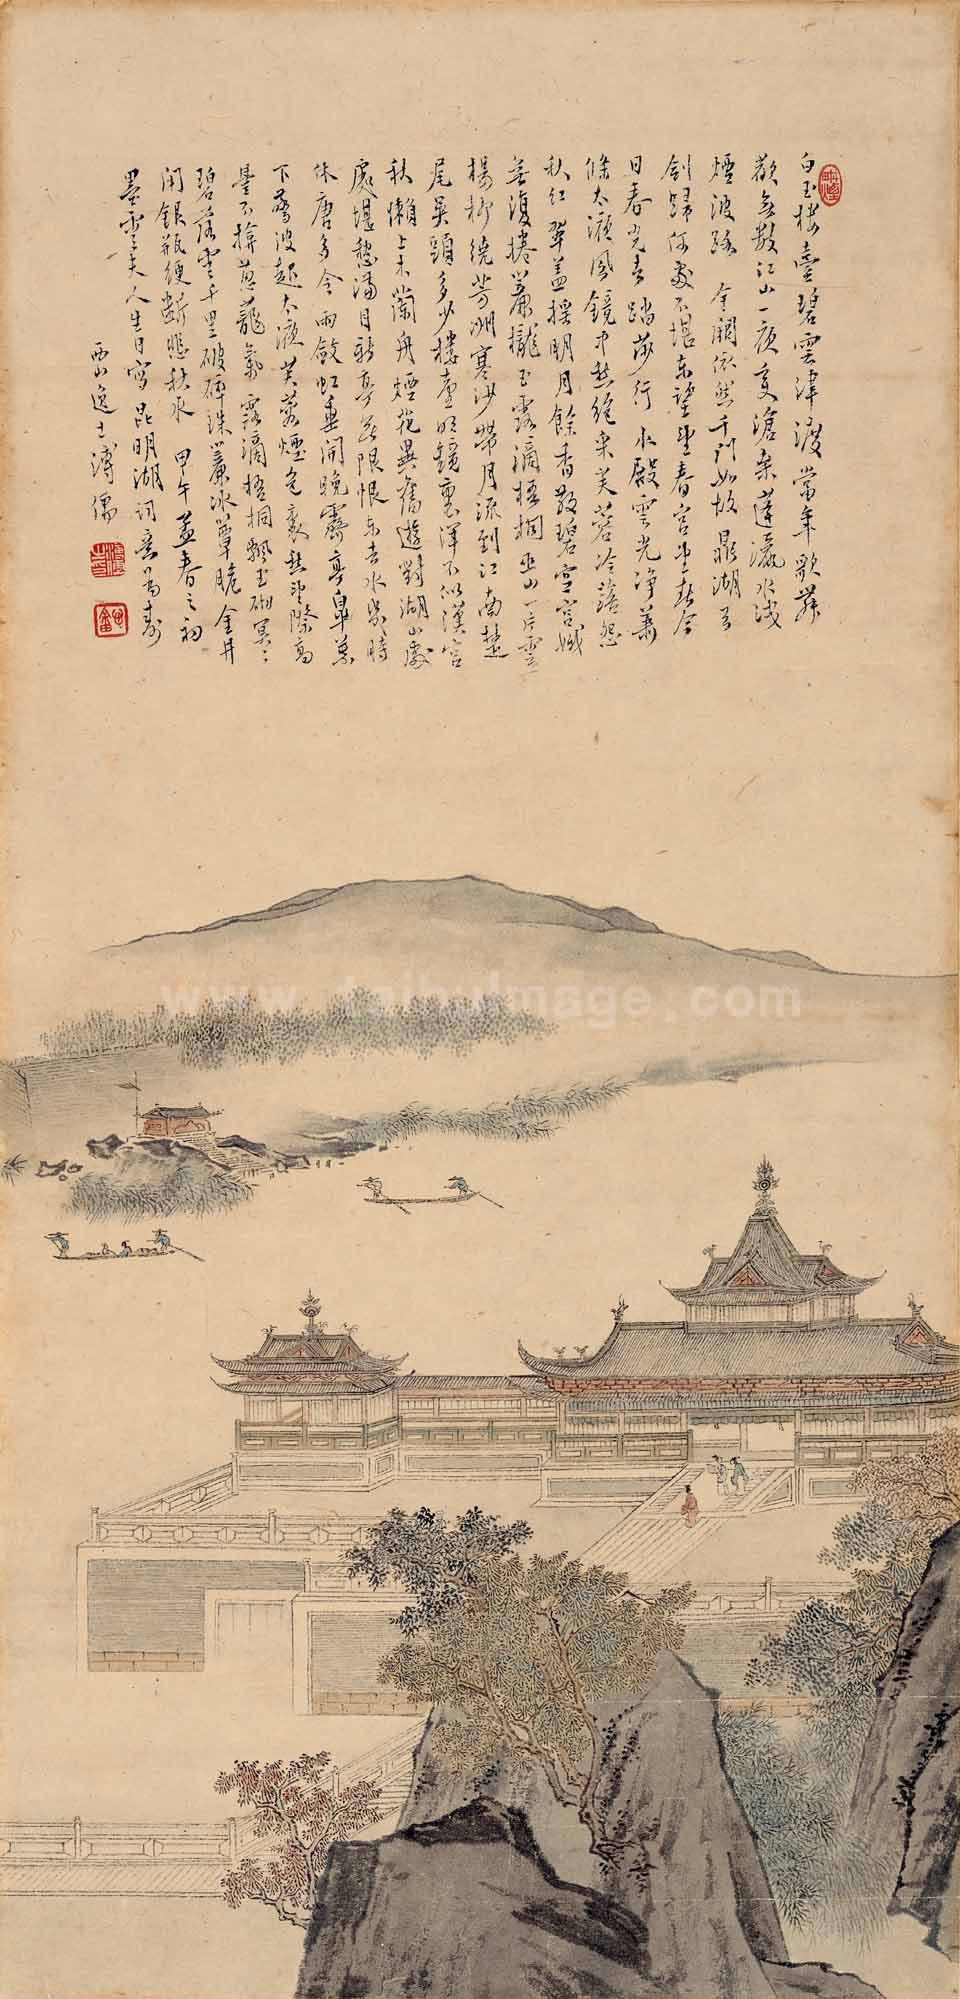 白玉樓臺碧雲津渡當年歌舞
歡無數江山一夜變滄桑蓬瀛水淺
煙波路 金闕依然千門如故鼎湖弓
劍歸何處不堪東望望春宮望春今
日春光去 踏莎行 水殿雲光淨蕭
條太液風鏡中愁絕采芙蓉冷落怨
秋紅 翠蓋搖明月餘香散碧空宮娥
無復捲簾櫳玉露滴梧桐 巫山一片雲
楊柳繞芳洲寒沙帶月流到江南楚
尾吳頭多少樓臺明鏡裏渾不似漢宮
秋 懶上木蘭舟煙花異舊遊對湖山處
處堪愁滿目新亭無限恨東去水幾時
休 唐多令 雨斂虹垂開晚霽亭皋葉
下驚波起太液芙蓉煙色裏愁望際高
臺不掩蔥蘢氣 露滴梧桐飄玉砌冥冥
碧落雲千里破碎珠簾冰簟膩金井
閉銀瓶綆斷悲秋水 甲午孟春之初
墨雲夫人生日寫昆明湖詞意為壽
西山逸士溥儒
www.taihuImage.com